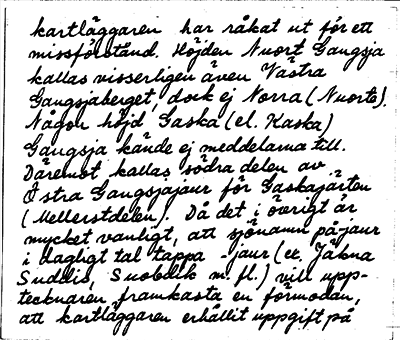 kartläggaren har råkat ut för ett
missförstånd. Höjden Nuort Gaugsja
kallas visserligen även Västra
Gaugsjaberget, dock ej Norra (Nuorta).
Någon höjd Gaska (el. Kaska)
Gaugsja kände ej meddelarna till.
Däremot kallas södra delen av
Östra Gaugsjajaur för Gaskajärten
(Mellerstdelen). Då det i övrigt är
mycket vanligt, att sjönamn på -jaur
i dagligt tal tappa -jaur (ex. Jåkna
Suddis, Suobdek m. fl.) vill upp-
tecknaren framkasta en förmodan,
att kartläggaren erhållit uppgift på